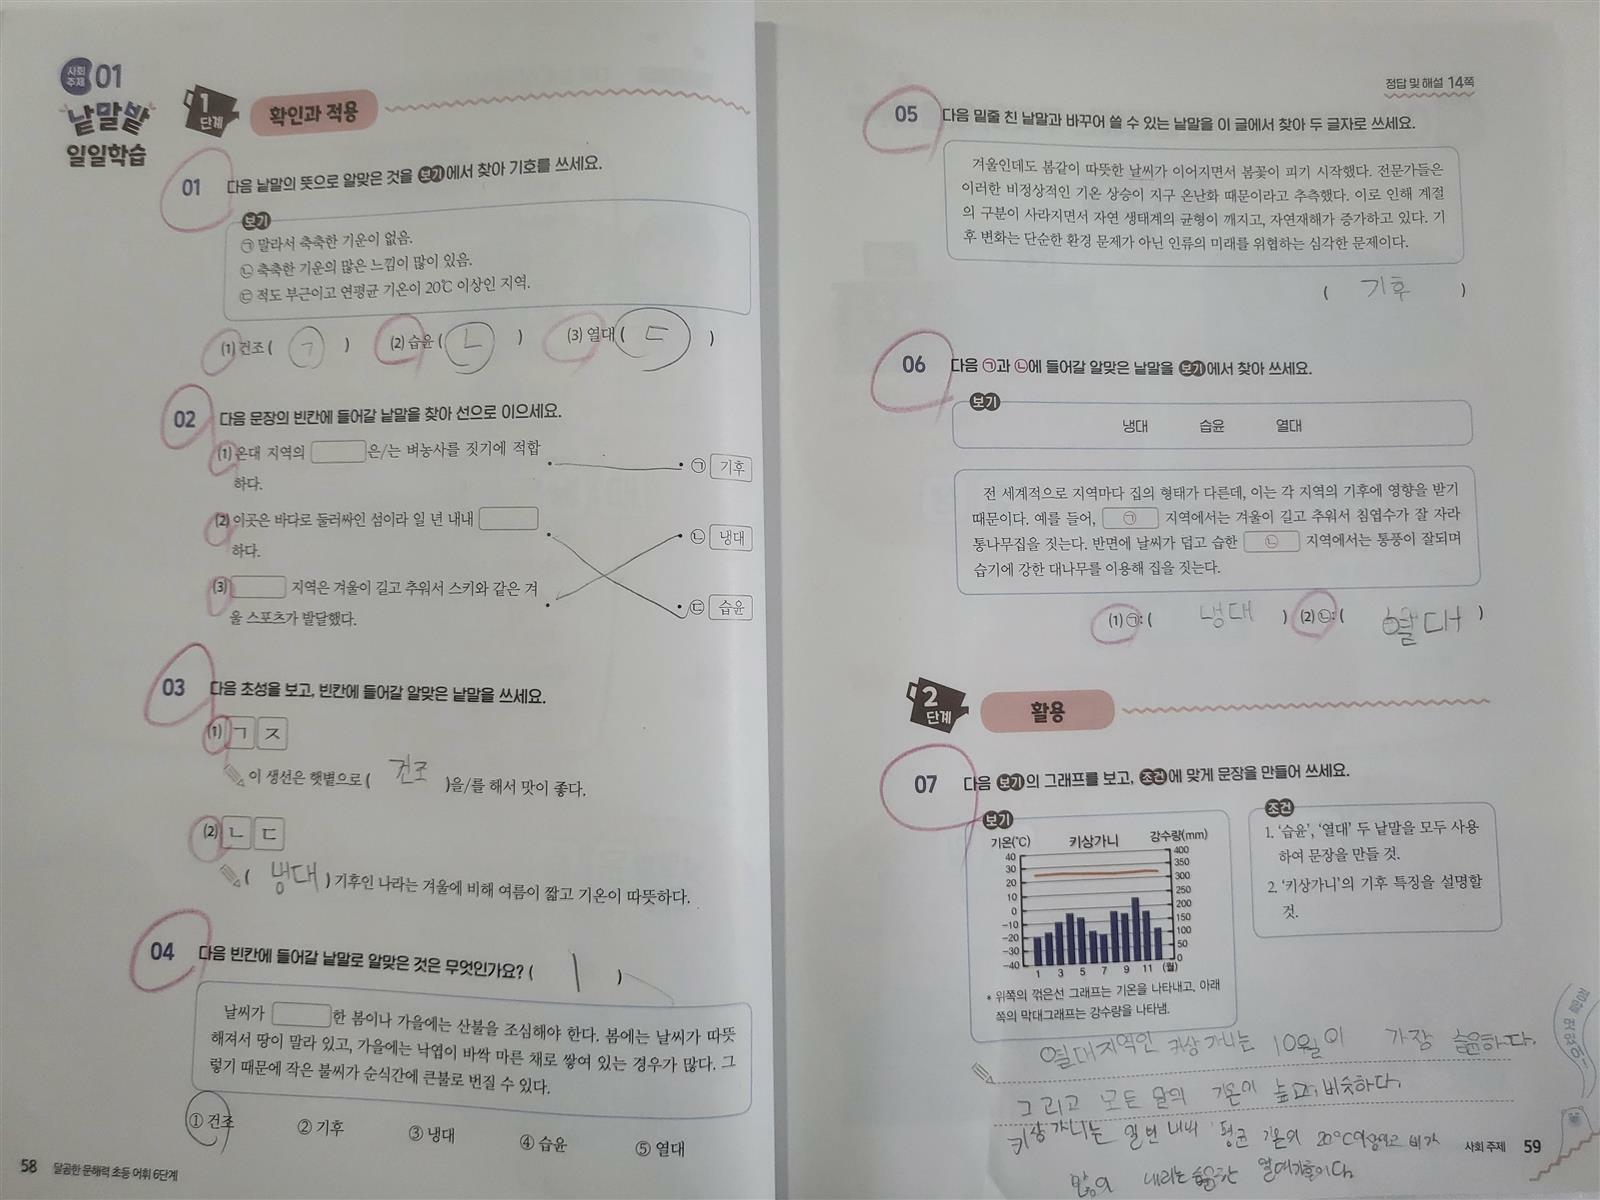 사회 주제 01
낱말밭
일일학습
1단계 확인과 적용
01 다음 낱말의 뜻으로 알맞은 것을 보기에서 찾아 기호를 쓰세요.
보기
㉠ 말라서 축축한 기운이 없음.
㉡ 축축한 기운의 많은 느낌이 많이 있음.
㉢ 적도 부근이고 연평균 기온이 20℃ 이상인 지역.
(1) 건조 ( ㄱ ) (2) 습윤 ( ㄴ ) (3) 열대 ( ㄷ )
02 다음 문장의 빈칸에 들어갈 낱말을 찾아 선으로 이으세요.
(1) 온대 지역의 은/는 벼농사를 짓기에 적합
하다.
㉠ 기후
(2) 이곳은 바다로 둘러싸인 섬이라 일 년 내내
하다.
㉡ 냉대
(3) 지역은 겨울이 길고 추워서 스키와 같은 겨
울 스포츠가 발달했다.
㉢ 습윤
03 다음 초성을 보고, 빈칸에 들어갈 알맞은 낱말을 쓰세요.
(1) ㄱ ㅈ
이 생선은 햇볕으로 ( 건조 )을/를 해서 맛이 좋다.
(2) ㄴ ㄷ
( 냉대 ) 기후인 나라는 겨울에 비해 여름이 짧고 기온이 따뜻하다.
04 다음 빈칸에 들어갈 낱말로 알맞은 것은 무엇인가요? ( 1 )
날씨가 한 봄이나 가을에는 산불을 조심해야 한다. 봄에는 날씨가 따뜻
해져서 땅이 말라 있고, 가을에는 낙엽이 바싹 마른 채로 쌓여 있는 경우가 많다. 그
렇기 때문에 작은 불씨가 순식간에 큰불로 번질 수 있다.
① 건조 ② 기후 ③ 냉대 ④ 습윤 ⑤ 열대
58 달곰한 문해력 초등 어휘 6단계
정답 및 해설 14쪽
05 다음 밑줄 친 낱말과 바꾸어 쓸 수 있는 낱말을 이 글에서 찾아 두 글자로 쓰세요.
겨울인데도 봄같이 따뜻한 날씨가 이어지면서 봄꽃이 피기 시작했다. 전문가들은
이러한 비정상적인 기온 상승이 지구 온난화 때문이라고 추측했다. 이로 인해 계절
의 구분이 사라지면서 자연 생태계의 균형이 깨지고, 자연재해가 증가하고 있다. 기
후 변화는 단순한 환경 문제가 아닌 인류의 미래를 위협하는 심각한 문제이다.
( 기후 )
06 다음 ㉠과 ㉡에 들어갈 알맞은 낱말을 보기에서 찾아 쓰세요.
보기
냉대 습윤 열대
전 세계적으로 지역마다 집의 형태가 다른데, 이는 각 지역의 기후에 영향을 받기
때문이다. 예를 들어, ㉠ 지역에서는 겨울이 길고 추워서 침엽수가 잘 자라
통나무집을 짓는다. 반면에 날씨가 덥고 습한 ㉡ 지역에서는 통풍이 잘되며
습기에 강한 대나무를 이용해 집을 짓는다.
(1) ㉠: ( 냉대 ) (2) ㉡: ( 열대 )
2단계 활용
07 다음 보기의 그래프를 보고, 조건에 맞게 문장을 만들어 쓰세요.
보기
기온(℃) 키상가니 강수량(mm)
40 400
30 350
20 300
10 250
0 200
-10 150
-20 100
-30 50
-40 0
1 3 5 7 9 11 (월)
* 위쪽의 꺾은선 그래프는 기온을 나타내고, 아래
쪽의 막대그래프는 강수량을 나타냄.
조건
1. '습윤', '열대' 두 낱말을 모두 사용
하여 문장을 만들 것.
2. '키상가니'의 기후 특징을 설명할
것.
열대지역인 키상가니는 10월이 가장 습윤하다.
그리고 모든 달의 기온이 높고, 비슷하다.
키상가니는 일년 내내 평균 기온이 20℃이상이고 비가
많이 내리는 습윤한 열대기후이다.
사회 주제 59